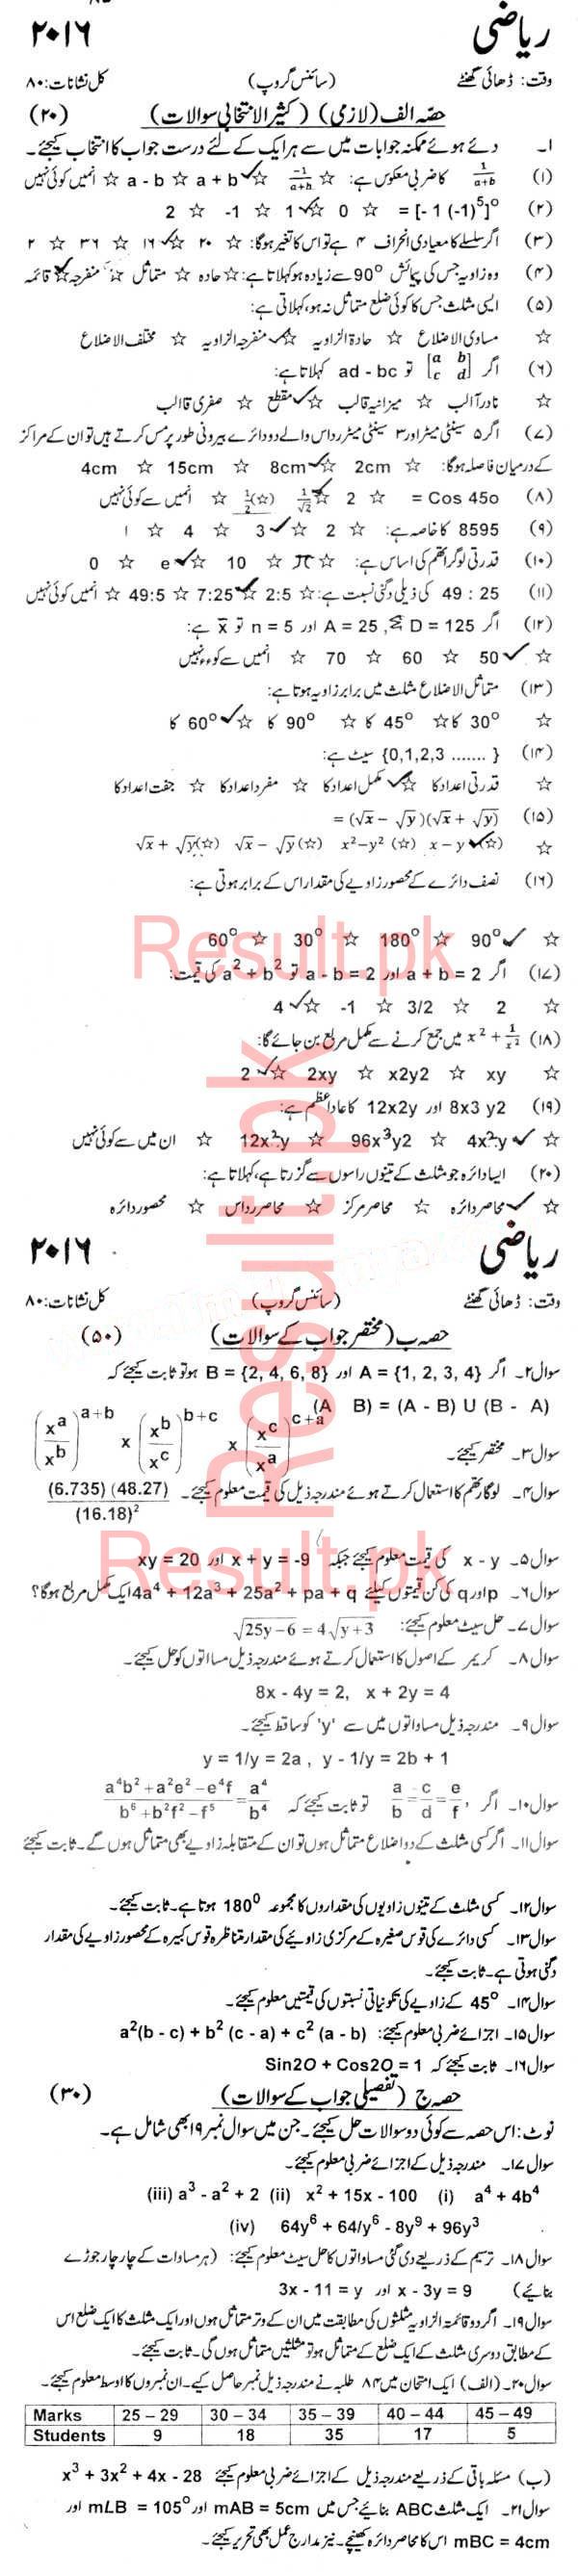 ریاضی ۲۰۱۶
وقت: ڈھائی گھنٹے (سائنس گروپ) کل نشانات: ۸۰
حصہ الف (لازمی) (کثیر الانتخابی سوالات) (۲۰)
۱۔ دئے ہوئے ممکنہ جوابات میں سے ہر ایک کے لئے درست جواب کا انتخاب کیجئے۔
(۱) 1/a+b کا ضربی معکوس ہے: ☆ -1/a+b ☆ a + b ☆ a - b ☆ انمیں کوئی نہیں
(۲) [- 1 (-1)⁵]⁰ = ☆ 0 ☆ 1 ☆ -1 ☆ 2
(۳) اگر سلسلے کا معیادی انحراف ۴ ہے تو اس کا تغیر ہوگا: ☆ ۲۰ ☆ ۱۶ ☆ ۳۶ ☆ ۲
(۴) وہ زاویہ جس کی پیمائش 90° سے زیادہ ہو کہلاتا ہے: ☆ حادہ ☆ متماثل ☆ منفرجہ ☆ قائمہ
(۵) ایسی مثلث جس کا کوئی ضلع متماثل نہ ہو، کہلاتی ہے:
☆ مساوی الاضلاع ☆ حادۃ الزاویہ ☆ منفرجۃ الزاویہ ☆ مختلف الاضلاع
(۶) اگر [a b c d] تو ad - bc کہلاتا ہے:
☆ نادر آالب ☆ میزانیہ قالب ☆ مقطع ☆ صفری قالب
(۷) اگر ۵ سینٹی میٹر اور ۳ سینٹی میٹر رداس والے دو دائرے بیرونی طور پر مس کرتے ہیں تو ان کے مراکز
کے درمیان فاصلہ ہوگا: ☆ 2cm ☆ 8cm ☆ 15cm ☆ 4cm
(۸) Cos 45o = ☆ 2 ☆ 1/√2 (☆) 1/2 ☆ انمیں سے کوئی نہیں
(۹) 8595 کا خاصہ ہے: ☆ 2 ☆ 3 ☆ 4 ☆ ۱
(۱۰) قدرتی لوگارتھم کی اساس ہے: ☆ π ☆ 10 ☆ e ☆ 0
(۱۱) 49 : 25 کی ذیلی دگنی نسبت ہے: ☆ 2:5 ☆ 7:25 ☆ 49:5 ☆ انمیں کوئی نہیں
(۱۲) اگر Σ D = 125, A = 25 اور n = 5 تو x̄ ہے:
☆ 50 ☆ 60 ☆ 70 ☆ انمیں سے کوءء نہیں
(۱۳) متماثل الاضلاع مثلث میں ہر زاویہ ہوتا ہے:
☆ 30° کا ☆ 45° کا ☆ 90° کا ☆ 60° کا
(۱۴) {0,1,2,3 ....... } سیٹ ہے:
☆ قدرتی اعداد کا ☆ مکمل اعداد کا ☆ مفرد اعداد کا ☆ جفت اعداد کا
(۱۵) (√x - √y)(√x + √y) =
☆ (☆) x - y (☆) x²-y² (☆) √x - √y (☆) √x + √y
(۱۶) نصف دائرے کے محصور زاویے کی مقدار اس کے برابر ہوتی ہے:
☆ 90° ☆ 180° ☆ 30° ☆ 60°
(۱۷) اگر a + b = 2 اور a - b = 2 تو a² + b² کی قیمت:
☆ 2 ☆ 3/2 ☆ -1 ☆ 4
(۱۸) x² + 1/x² میں جمع کرنے سے مکمل مربع بن جائے گا:
☆ xy ☆ x2y2 ☆ 2xy ☆ 2
(۱۹) 8x3 y2 اور 12x2y کا عاد اعظم ہے:
☆ 4x²y ☆ 96x³y2 ☆ 12x²y ☆ ان میں سے کوئی نہیں
(۲۰) ایسا دائرہ جو مثلث کے تینوں راسوں سے گزرتا ہے، کہلاتا ہے:
☆ محاصر دائرہ ☆ محاصر مرکز ☆ محاصر رداس ☆ محصور دائرہ
ریاضی ۲۰۱۶
وقت: ڈھائی گھنٹے (سائنس گروپ) کل نشانات: ۸۰
حصہ ب (مختصر جواب کے سوالات) (۵۰)
سوال۲۔ اگر A = {1, 2, 3, 4} اور B = {2, 4, 6, 8} ہو تو ثابت کیجئے کہ
(A B) = (A - B) U (B - A)
سوال۳۔ مختصر کیجئے۔ (xᵃ/xᵇ)ᵃ⁺ᵇ x (xᵇ/xᶜ)ᵇ⁺ᶜ x (xᶜ/xᵃ)ᶜ⁺ᵃ
سوال۴۔ لوگارتھم کا استعمال کرتے ہوئے مندرجہ ذیل کی قیمت معلوم کیجئے۔ (6.735) (48.27) / (16.18)²
سوال۵۔ x - y کی قیمت معلوم کیجئے جبکہ x + y = -9 اور xy = 20
سوال۶۔ p اور q کی کن قیمتوں کیلئے 4a⁴ + 12a³ + 25a² + pa + q ایک مکمل مربع ہوگا؟
سوال۷۔ حل سیٹ معلوم کیجئے: √25y-6 = 4√y+3
سوال۸۔ کریمر کے اصول کا استعمال کرتے ہوئے مندرجہ ذیل مساواتوں کو حل کیجئے۔
8x - 4y = 2, x + 2y = 4
سوال۹۔ مندرجہ ذیل مساواتوں میں سے 'y' کو ساقط کیجئے۔
y = 1/y = 2a , y - 1/y = 2b + 1
سوال۱۰۔ اگر، a/b = c/d = e/f تو ثابت کیجئے کہ a⁴b²+a²e²-e⁴f / b⁶+b²f²-f⁵ = a⁴/b⁴
سوال۱۱۔ اگر کسی مثلث کے دو اضلاع متماثل ہوں تو ان کے متقابلہ زاویے بھی متماثل ہوں گے۔ ثابت کیجئے
سوال۱۲۔ کسی مثلث کے تینوں زاویوں کی مقداروں کا مجموعہ 180° ہوتا ہے۔ ثابت کیجئے۔
سوال۱۳۔ کسی دائرے کی قوس صغیرہ کے مرکزی زاویئے کی مقدار متناظرہ قوس کبیرہ کے محصور زاویے کی مقدار
دگنی ہوتی ہے۔ ثابت کیجئے۔
سوال۱۴۔ 45° کے زاویے کی تکونیاتی نسبتوں کی قیمتیں معلوم کیجئے۔
سوال۱۵۔ اجزائے ضربی معلوم کیجئے: a²(b - c) + b² (c - a) + c² (a - b)
سوال۱۶۔ ثابت کیجئے کہ Sin2O + Cos2O = 1
حصہ ج (تفصیلی جواب کے سوالات) (۳۰)
نوٹ: اس حصہ سے کوئی دو سوالات حل کیجئے۔ جن میں سوال نمبر ۱۹ بھی شامل ہے۔
سوال۱۷۔ مندرجہ ذیل کے اجزائے ضربی معلوم کیجئے۔
(i) a⁴ + 4b⁴ (ii) x² + 15x - 100 (iii) a³ - a² + 2
(iv) 64y⁶ + 64/y⁶ - 8y⁹ + 96y³
سوال۱۸۔ ترسیم کے ذریعے دی گئی مساواتوں کا حل سیٹ معلوم کیجئے: (ہر مساوات کے چار چار جوڑے
بنائیے) x - 3y = 9 اور 3x - 11 = y
سوال۱۹۔ اگر دو قائمۃ الزاویہ مثلثوں کی مطابقت میں ان کے وتر متماثل ہوں اور ایک مثلث کا ایک ضلع اس
کے مطابق دوسری مثلث کے ایک ضلع کے متماثل ہو تو مثلثیں متماثل ہوں گی۔ ثابت کیجئے۔
سوال۲۰۔ (الف) ایک امتحان میں ۸۴ طلبہ نے مندرجہ ذیل نمبر حاصل کیے۔ ان نمبروں کا اوسط معلوم کیجئے۔
Marks 25 – 29 30 – 34 35 – 39 40 – 44 45 – 49
Students 9 18 35 17 5
(ب) مسئلہ باقی کے ذریعے مندرجہ ذیل کے اجزائے ضربی معلوم کیجئے x³ + 3x² + 4x - 28
سوال۲۱۔ ایک مثلث ABC بنائیے جس میں mAB = 5cm اور mLB = 105° اور
mBC = 4cm اس کا محاصر دائرہ کھینچے۔ نیز مدارج عمل بھی تحریر کیجئے۔
Result.pk
Result.pk
Result.pk